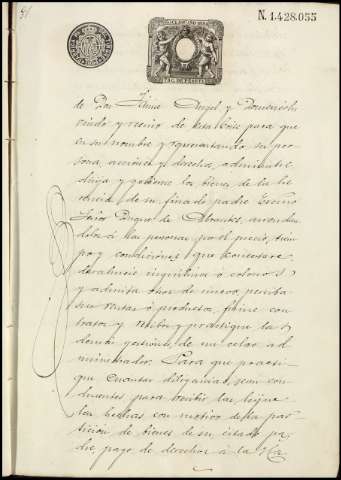 N. 1.428.055
de Don Jaime Angel y
viudo y vecino de esta Corte para que
en su nombre y representando su per
sona, acciones y derechos, administre,
dirija y gobierne los bienes de la he
rencia de su finado padre Excmo
Señor Duque de Abrantes, arrendan
dolos á las personas por el precio, tiem
po y condiciones que
inquilinos ó colonos
y admita otros de nuevo, perciba
sus rentas ó productos, firme con
tratos y recibos y practique las
demás gestiones de un celoso ad
ministrador. Para que practi
que cuantas diligencias sean con
ducentes para
hechas con motivo de la par
tición de bienes de su citado pa
dre, pago de derechos á la Ha